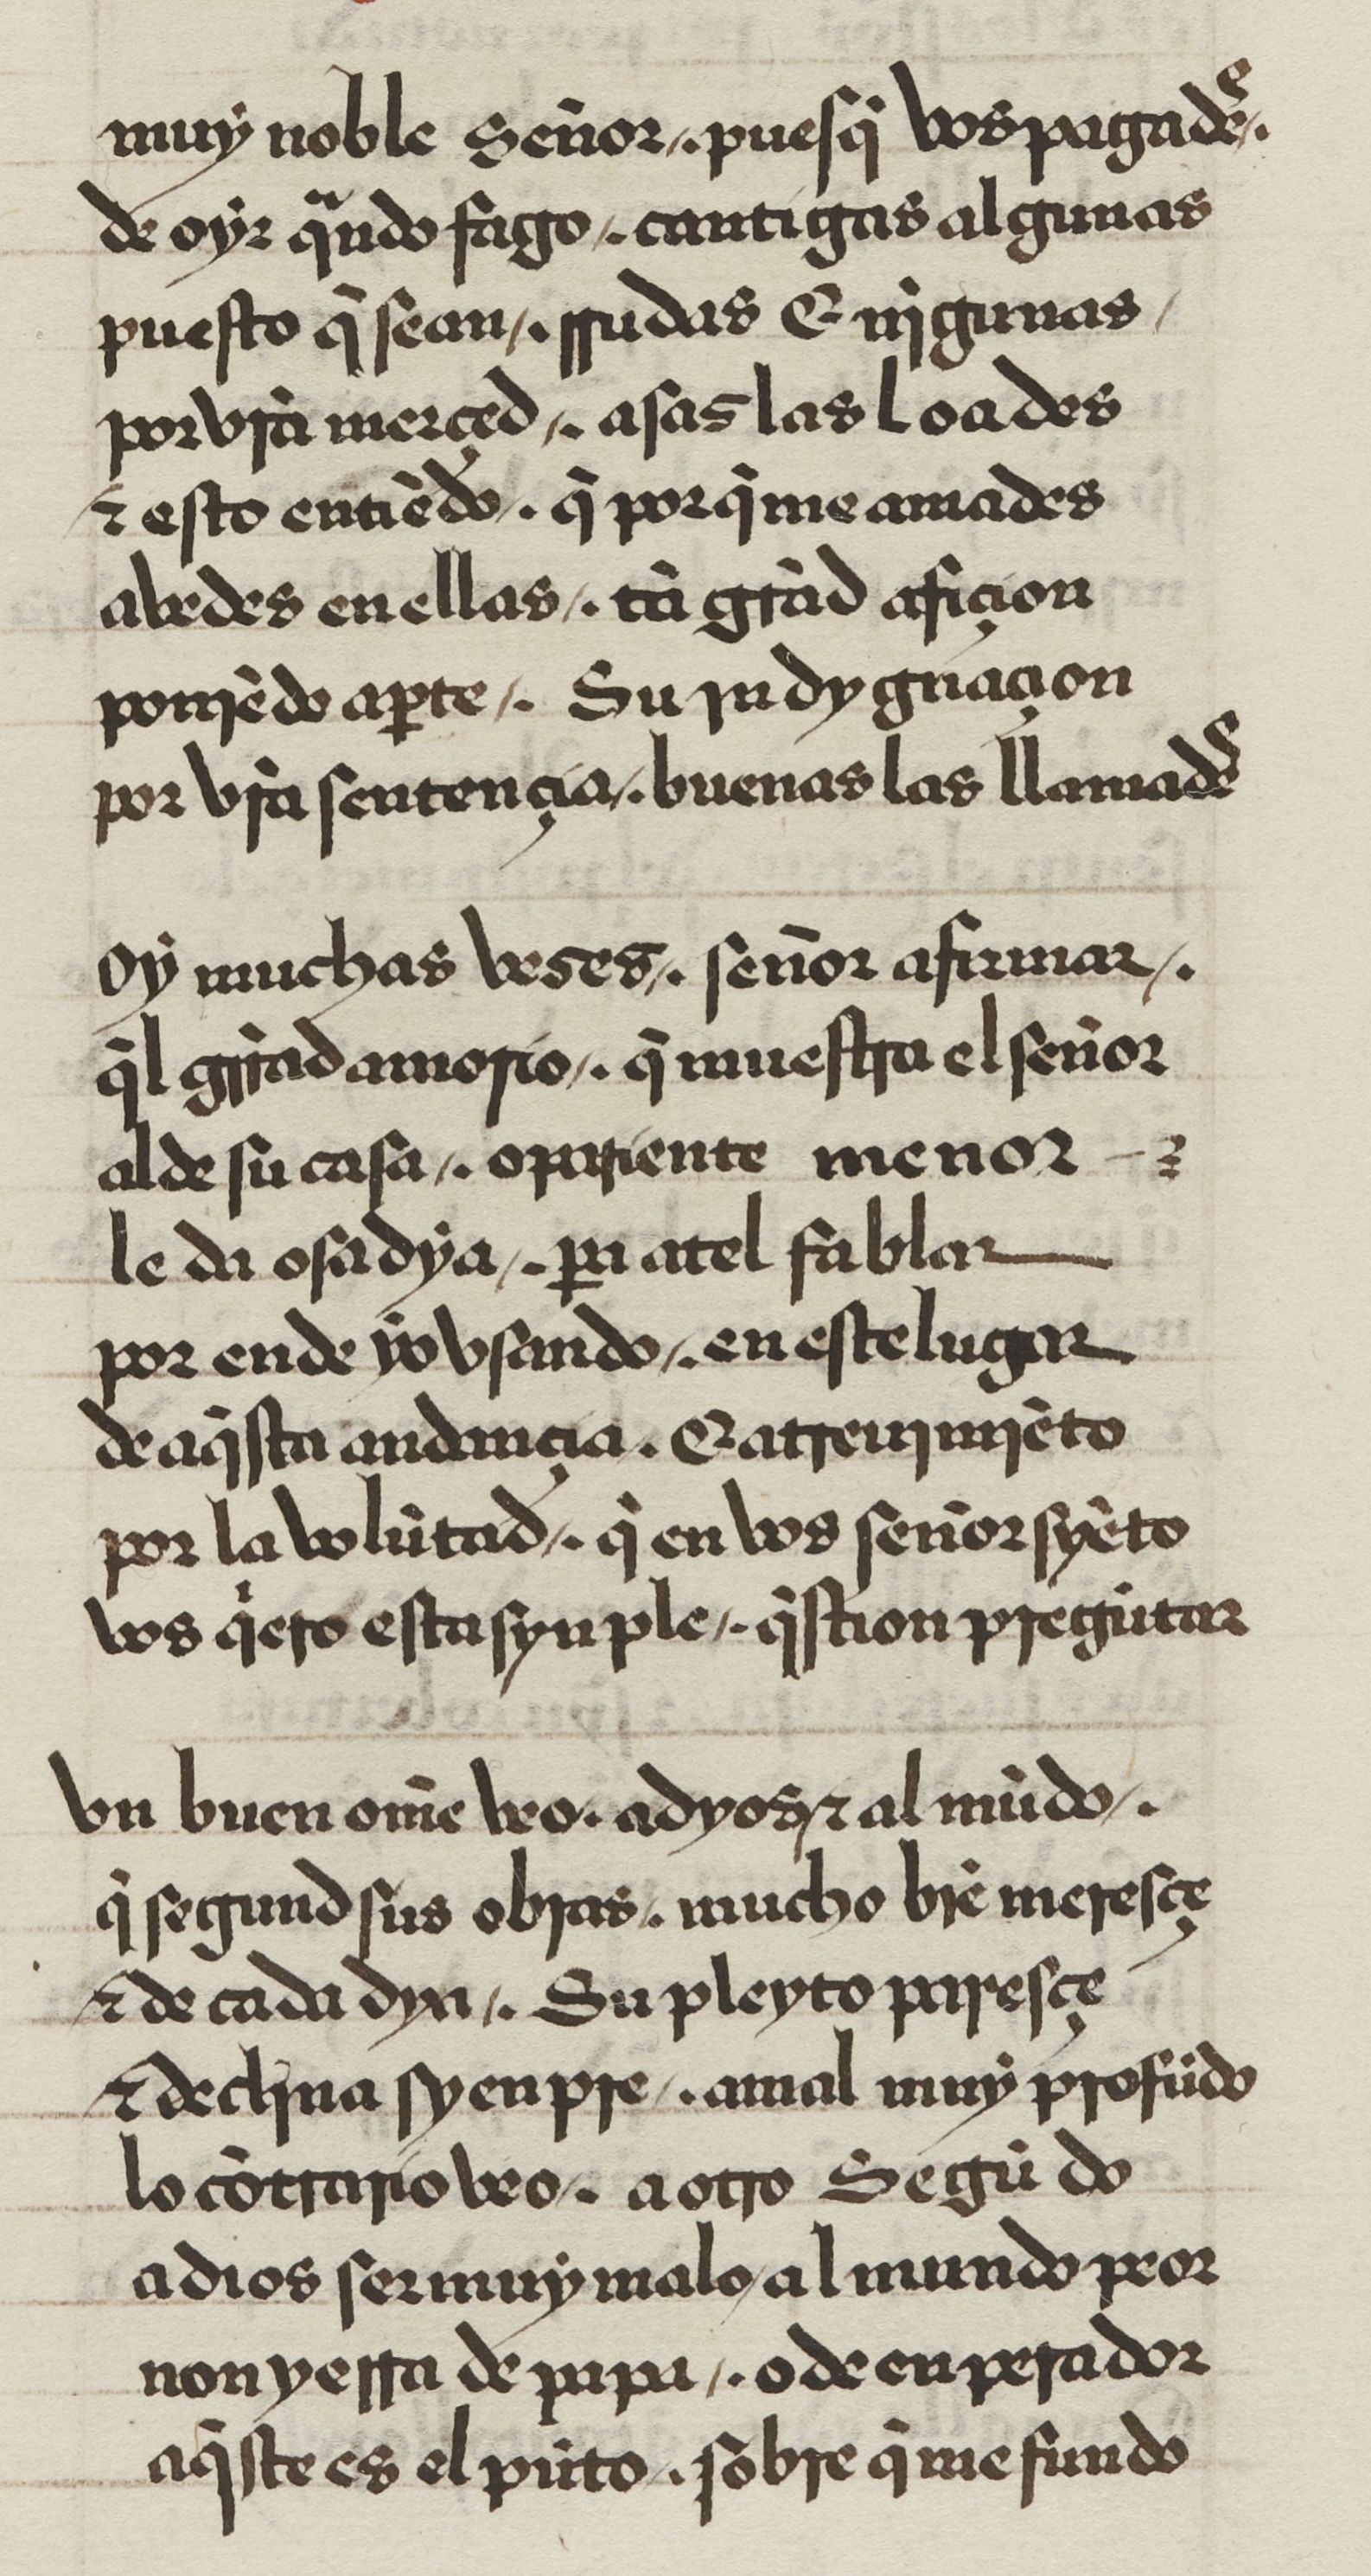 muy noble Señor /. puesq̃ vos pagadẽs /.
de oyr quãdo fago /. cantigas algunas
puesto q̃ sean /. rrudas & njgunas /
por vr̃a merçed /. asas las loades
⁊ esto entiẽdo /. q̃ por q̃ me amades
abedes en ellas /. tã grãd afiçion
ponjẽdo aꝑte /. Su jndygnaçion
por vr̃a sentençia /. buenas las llamadẽs
Oy muchas veses /. señor afirmar /.
q̃l grrãd amorio /. q̃ muestra el señor
al de su casa /. o pariente menor
le da osadya /. ꝑa atel fablar
por ende yo vsando /. en este lugar
de aq̃sta andançia . & atreujmjẽto
por la volũtad /. q̃ en vos señor syẽto
vos q̃ero esta synple /. q̃stion pregũtar
vn buen om̃e veo . a dyos ⁊ al mũdo /.
q̃ segund sus obras /. mucho biẽ meresçe
⁊ de cada dya /. Su pleyto paresçe
⁊ decljna syenpre /. a mal muy profũdo
lo cõtrario veo /. a otro Segũdo
a dios ser muy malo / al mundo peor
non yerra de papa /. o de enperador
aq̃ste es el pũto /. sobre q̃ me fundo